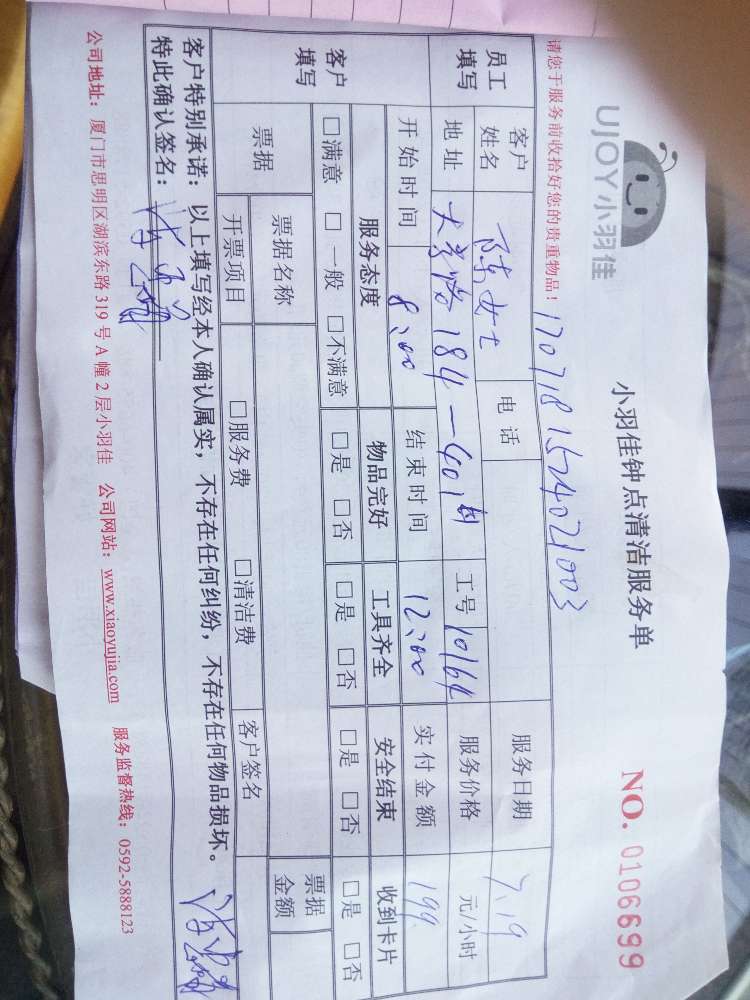 UJOY小羽佳
小羽佳钟点清洁服务单
NO. 0106699
请您于服务前收拾好您的贵重物品！ 170718152402 1003
员工填写 客户姓名 陈女士 电话 服务日期 7.19
地址 大学路184-401 工号 10164 服务价格 元/小时
开始时间 8:00 结束时间 12:00 实付金额 199
客户填写 服务态度 物品完好 工具齐全 安全结束 收到卡片
□满意 □一般 □不满意 □是 □否 □是 □否 □是 □否 □是 □否
票据 票据名称 票据金额
开票项目 □服务费 □清洁费 客户签名
客户特别承诺：以上填写经本人确认属实，不存在任何纠纷，不存在任何物品损坏。
特此确认签名：
公司地址：厦门市思明区湖滨东路 319 号 A 幢 2 层小羽佳 公司网站：www.xiaoyujia.com 服务监督热线：0592-5888123